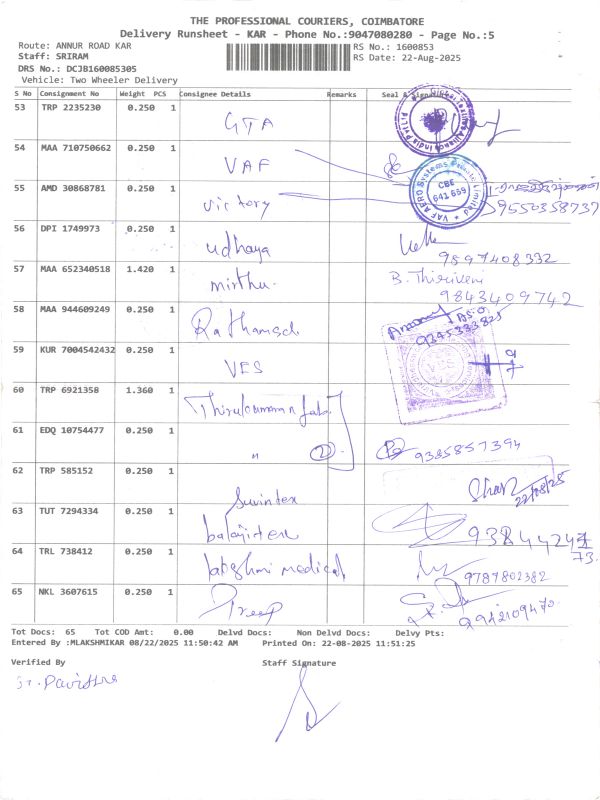 THE PROFESSIONAL COURIERS, COIMBATORE
Delivery Runsheet - KAR - Phone No.:9047080280 - Page No.:5
Route: ANNUR ROAD KAR RS No.: 1600853
Staff: SRIRAM RS Date: 22-Aug-2025
DRS No.: DCJB160085305
Vehicle: Two Wheeler Delivery
S No Consignment No Weight PCS Consignee Details Remarks Seal &
53 TRP 2235230 0.250 1 GTA
54 MAA 710750662 0.250 1 VAF
VAF AERO Systems Limited
CBE
641 659
55 AMD 30868781 0.250 1 victory 9550358737
56 DPI 1749973 0.250 1 udhaya 9897408332
57 MAA 652340518 1.420 1 mirthu. B. Thiriveni
9843409742
58 MAA 944609249 0.250 1
9345333825
59 KUR 7004542432 0.250 1 VES
60 TRP 6921358 1.360 1
61 EDQ 10754477 0.250 1 " 2 9385857394
62 TRP 585152 0.250 1 Swintex 22/08/25
63 TUT 7294334 0.250 1 balajitex
64 TRL 738412 0.250 1 lakshmi medical 9787802382
65 NKL 3607615 0.250 1 Preep 9942109470
Tot Docs: 65 Tot COD Amt: 0.00 Delvd Docs: Non Delvd Docs: Delvy Pts:
Entered By :MLAKSHMIKAR 08/22/2025 11:50:42 AM Printed On: 22-08-2025 11:51:25
Verified By Staff Signature